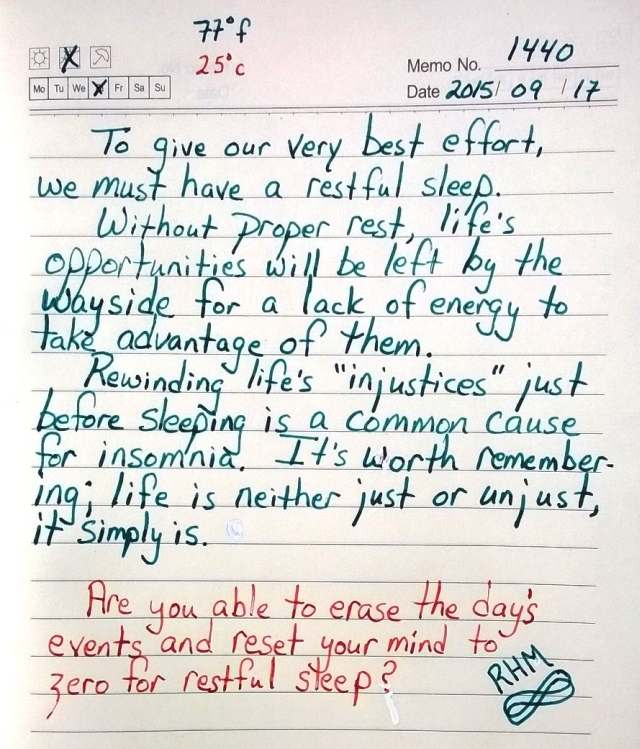 77°f
25°c
Memo No. 1440
Mo Tu We Fr Sa Su
Date 2015/ 09 / 17
To give our very best effort,
we must have a restful sleep.
Without proper rest, life's
opportunities will be left by the
wayside for a lack of energy to
take advantage of them.
Rewinding life's "injustices" just
before sleeping is a common cause
for insomnia. It's worth remember-
ing; life is neither just or unjust,
it simply is.
Are you able to erase the day's
events and reset your mind to
zero for restful sleep?
RHM